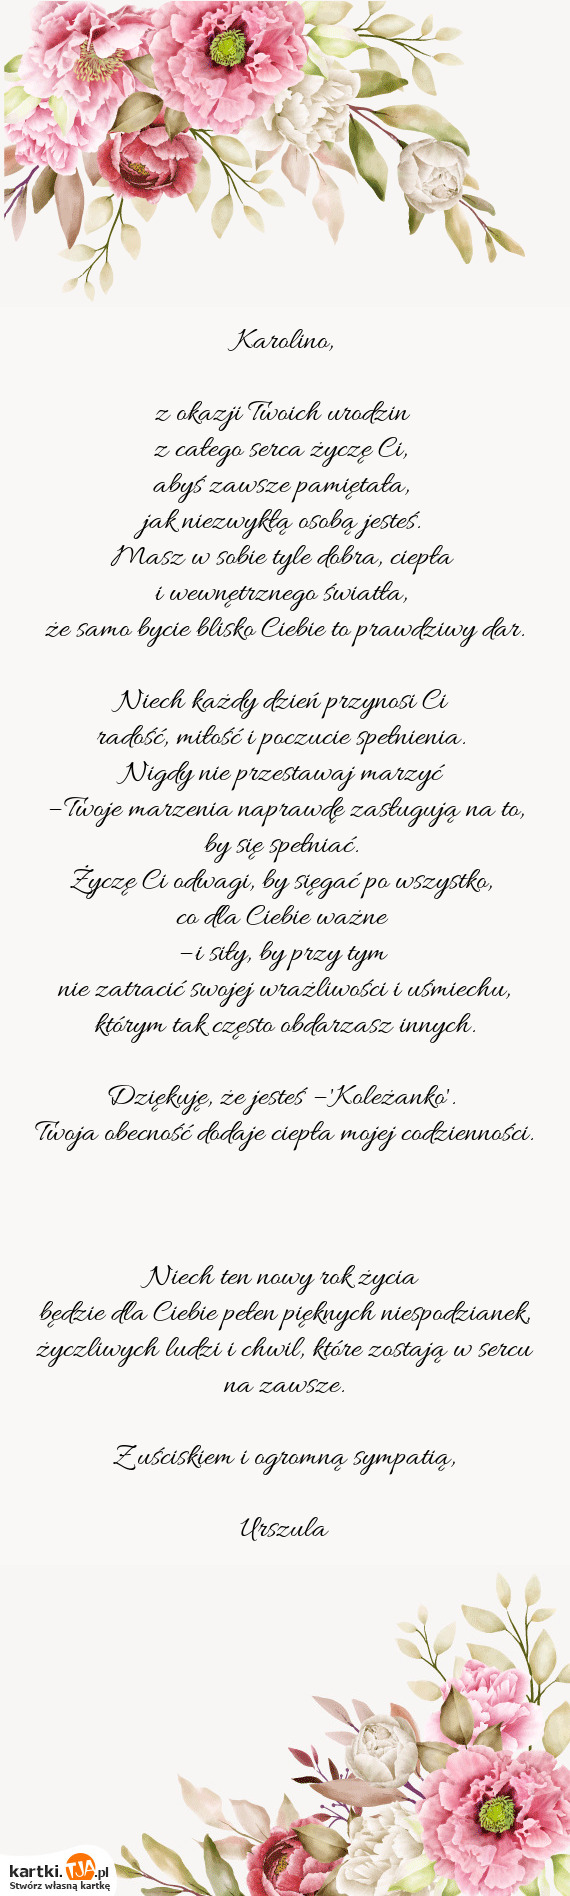 Karolino,
z okazji Twoich urodzin
z całego serca życzę Ci,
abyś zawsze pamiętała,
jak niezwykłą osobą jesteś.
Masz w sobie tyle dobra, ciepła
i wewnętrznego światła,
że samo bycie blisko Ciebie to prawdziwy dar.
Niech każdy dzień przynosi Ci
radość, miłość i poczucie spełnienia.
Nigdy nie przestawaj marzyć
–Twoje marzenia naprawdę zasługują na to,
by się spełniać.
Życzę Ci odwagi, by sięgać po wszystko,
co dla Ciebie ważne
–i siły, by przy tym
nie zatracić swojej wrażliwości i uśmiechu,
którym tak często obdarzasz innych.
Dziękuję, że jesteś –'Koleżanko'.
Twoja obecność dodaje ciepła mojej codzienności.
Niech ten nowy rok życia
będzie dla Ciebie pełen pięknych niespodzianek,
życzliwych ludzi i chwil, które zostają w sercu
na zawsze.
Z uściskiem i ogromną sympatią,
Urszula
kartki.TJA.pl
Stwórz własną kartkę